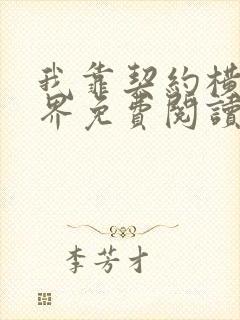 我靠契约橫
界免費閱讀
李芳才